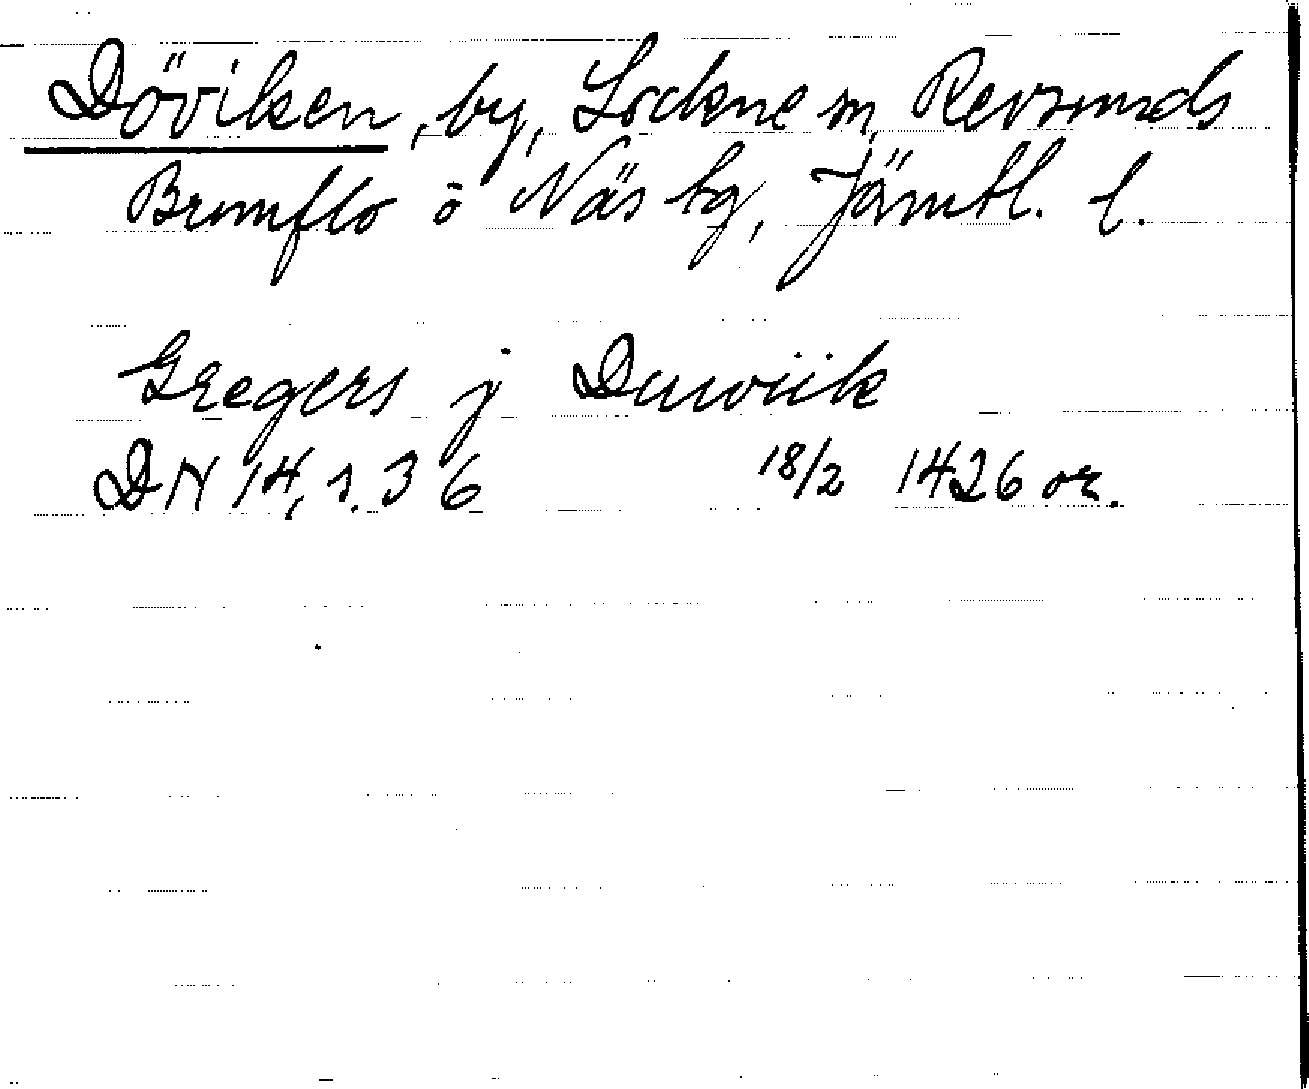 Döviken, by, Lockne sn, Revsunds
Brunflo o Näs tg, Jämtl. l.
Gregers j Duwiik
DN 14, s. 36 18/2 1426 or.